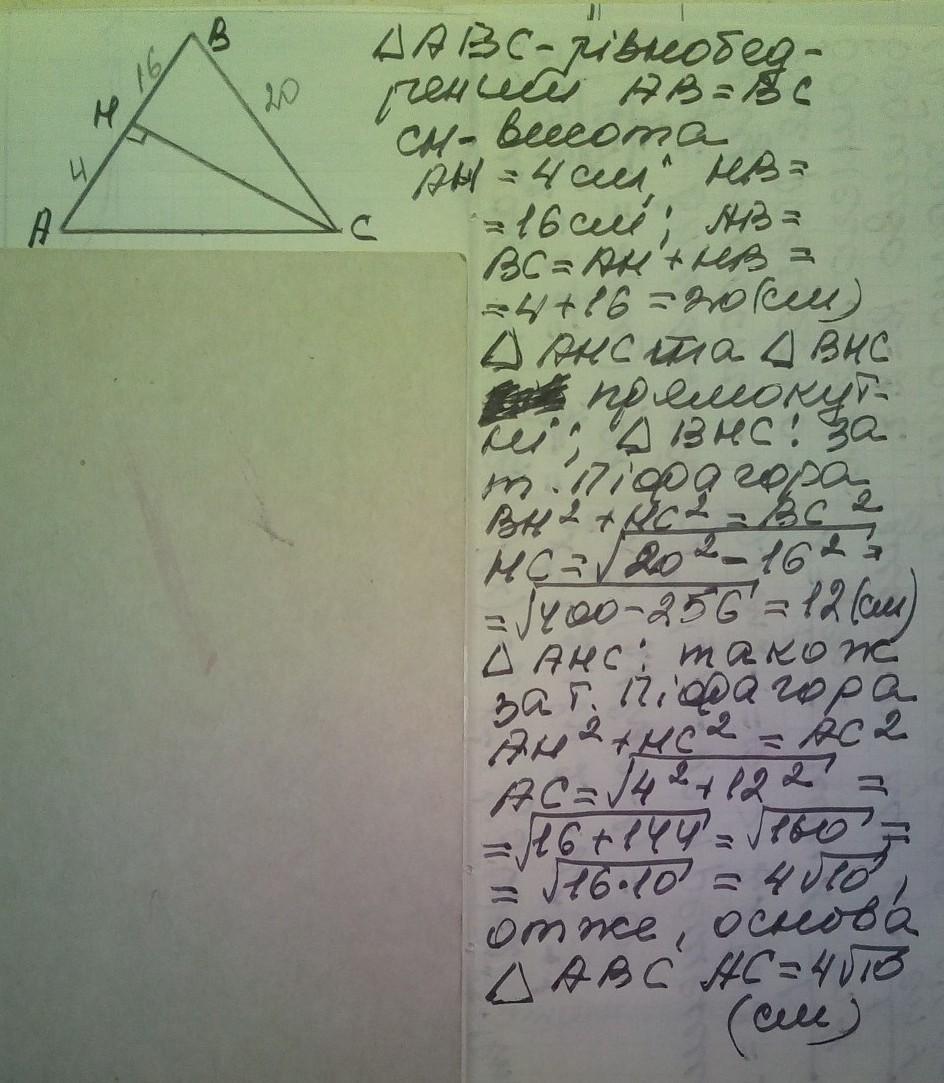 B
16
20
H
4
A
C
△ABC - рівнобед-
рений AB = BC
CH - висота
AH = 4 см; HB =
= 16 см; AB =
BC = AH + HB =
= 4 + 16 = 20 (см)
△ AHC та △ BHC
прямокут-
ні; △ BHC: за
т. Піфагора
BH² + HC² = BC²
HC = √20² - 16² =
= √400 - 256 = 12 (см)
△ AHC: також
за т. Піфагора
AH² + HC² = AC²
AC = √4² + 12² =
= √16 + 144 = √160 =
= √16·10 = 4√10,
отже, основа
△ ABC AC = 4√10
(см)